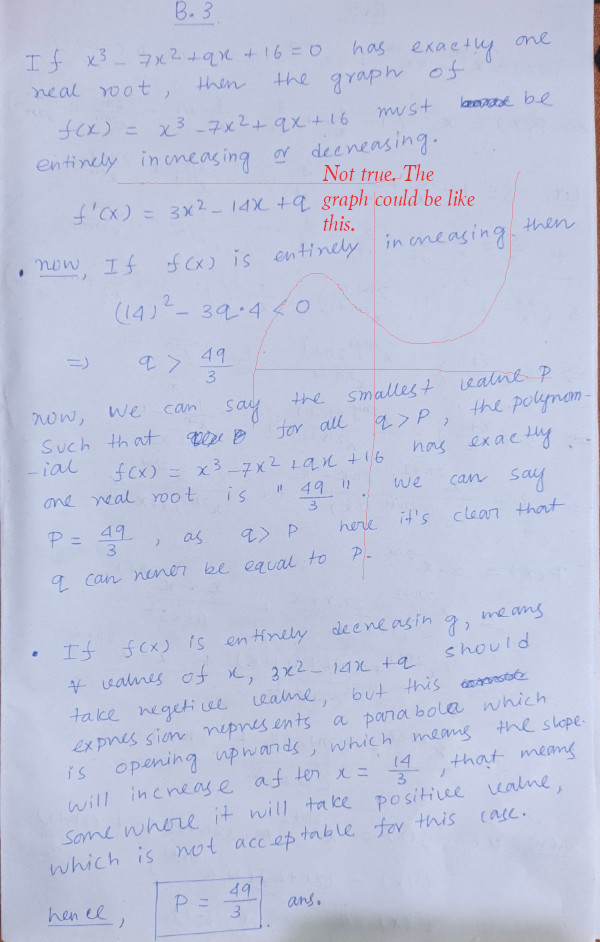 B.3
If x³ - 7x² + qx + 16 = 0 has exactly one
real root, then the graph of
f(x) = x³ - 7x² + qx + 16 must be
entirely increasing or decreasing.
Not true. The
graph could be like
this.
f'(x) = 3x² - 14x + q
• now, If f(x) is entirely increasing then
(14)² - 3q·4 < 0
⇒ q > 49/3
now, we can say the smallest value P
Such that for all q > P, the polynom-
-ial f(x) = x³ - 7x² + qx + 16 has exactly
one real root is " 49/3 ". we can say
P = 49/3 , as q > P here it's clear that
q can never be equal to P.
• If f(x) is entirely decreasing, means
∀ values of x, 3x² - 14x + q should
take negetive value, but this
expression represents a parabola which
is opening upwards, which means the slope
will increase after x = 14/3 , that means
somewhere it will take positive value,
which is not acceptable for this case.
hence, P = 49/3 ans.